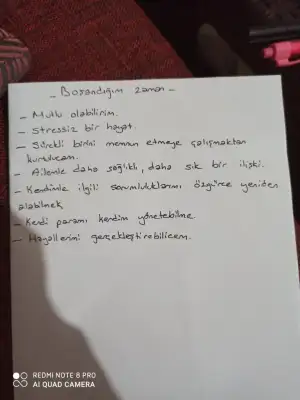 - Boşandığım zaman -
- Mutlu olabilirim.
- Stressiz bir hayat.
- Sürekli birini memnun etmeye çalışmaktan
kurtulucam.
- Ailemle daha sağlıklı, daha sık bir ilişki.
- Kendimle ilgili sorumlulukları özgürce yeniden
alabilmek
- Kendi paramı kendim yönetebilme
- Hayallerimi gerçekleştirebilicem.
REDMI NOTE 8 PRO
AI QUAD CAMERA